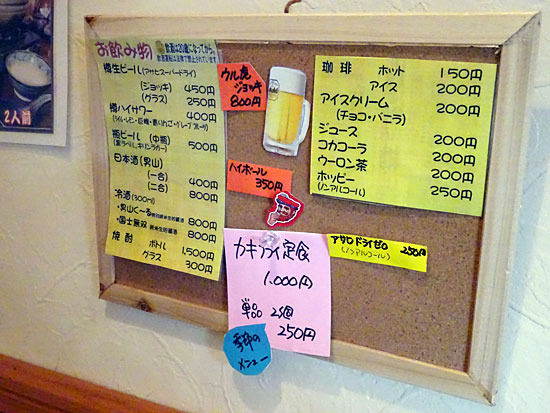 2人前
お飲み物
飲酒は20歳になってから。
樽生ビール(アサヒスーパードライ)
(ジョッキ) 450円
(グラス) 250円
樽ハイサワー 400円
瓶ビール (中瓶) 500円
日本酒(男山)
(一合) 400円
(二合) 800円
冷酒(300ml)
・男山く〜る 800円
・国士無双 800円
焼酎 ボトル 1,500円
グラス 300円
ウル虎
ジョッキ
800円
ハイボール
350円
珈琲 ホット 150円
アイス 200円
アイスクリーム 200円
(チョコ・バニラ)
ジュース 200円
コカコーラ 200円
ウーロン茶 200円
ホッピー 250円
(ノンアルコール)
アサヒドライゼロ 250円
(ノンアルコール)
カキフライ定食
1,000円
単品 2ヶ
250円
季節の
メニュー